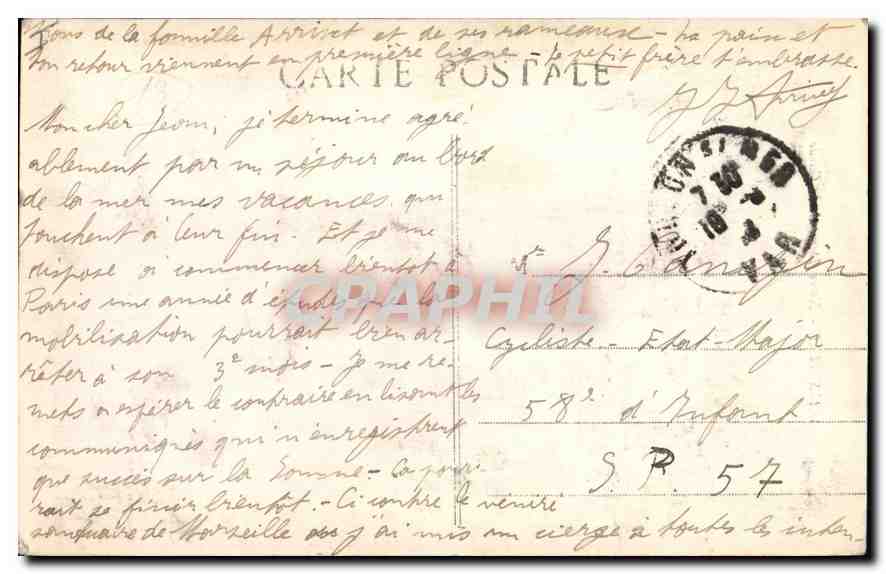 tions de la famille Arrivet et de ses rameaux - La paix et
ton retour viennent en première ligne - Le petit frère t'embrasse.
CARTE POSTALE
J J Arrivet
Mon cher Jean, je termine agré-
ablement par un séjour au bord
de la mer mes vacances qui
touchent à leur fin. Et je me
dispose à commencer bientôt à
Paris une année d'études que la
mobilisation pourrait bien ar-
rêter à son 3e mois - Je me re-
mets à espérer le contraire en lisant les
communiqués qui n'enregistrent
que succès sur la Somme - Ca pour-
rait se finir bientôt. - Ci contre le vénéré
sanctuaire de Marseille où j'ai mis un cierge à toutes les inten-
SUR MER
7 30
VAR
J.
Cycliste - Etat-Major
58e d'Infant
S. P. 57
CPAPHIL